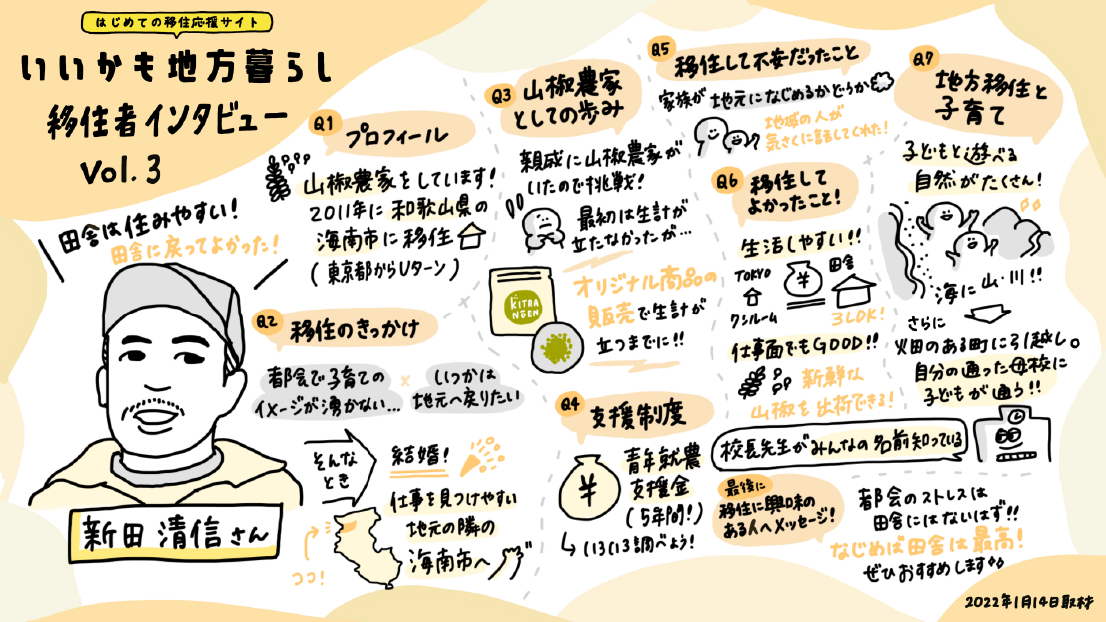 はじめての移住応援サイト
いいかも地方暮らし
移住者インタビュー
Vol.3
田舎は住みやすい!
田舎に戻ってよかった!
新田 清信さん
Q1 プロフィール
山椒農家をしています!
2011年に和歌山県の
海南市に移住
(東京都からUターン)
Q2 移住のきっかけ
都会で子育ての
イメージが湧かない…
×
いつかは
地元へ戻りたい
そんな
とき
結婚!
仕事を見つけやすい
地元の隣の
海南市へ
ココ!
Q3 山椒農家
としての歩み
親戚に山椒農家が
いたので挑戦!
最初は生計が
立たなかったが…
オリジナル商品の
販売で生計が
立つまでに!!
KITRA
NOEN
Q4 支援制度
¥
青年就農
支援金
(5年間!)
いろいろ調べよう!
Q5 移住して不安だったこと
家族が地元になじめるかどうか
地域の人が
気さくに話してくれた!
Q6 移住して
よかったこと!
生活しやすい!!
TOKYO
ワンルーム
¥
田舎
3LDK!
仕事面でもGOOD!!
新鮮な
山椒を出荷できる!
Q7 地方移住と
子育て
子どもと遊べる
自然がたくさん!
海に山・川!!
さらに
畑のある町に引越し。
自分の通った母校に
子どもが通う!!
校長先生がみんなの名前知っている
最後に
移住に興味の
ある人へメッセージ!
都会のストレスは
田舎にはないはず!!
なじめば田舎は最高!
ぜひおすすめします
2022年1月14日取材